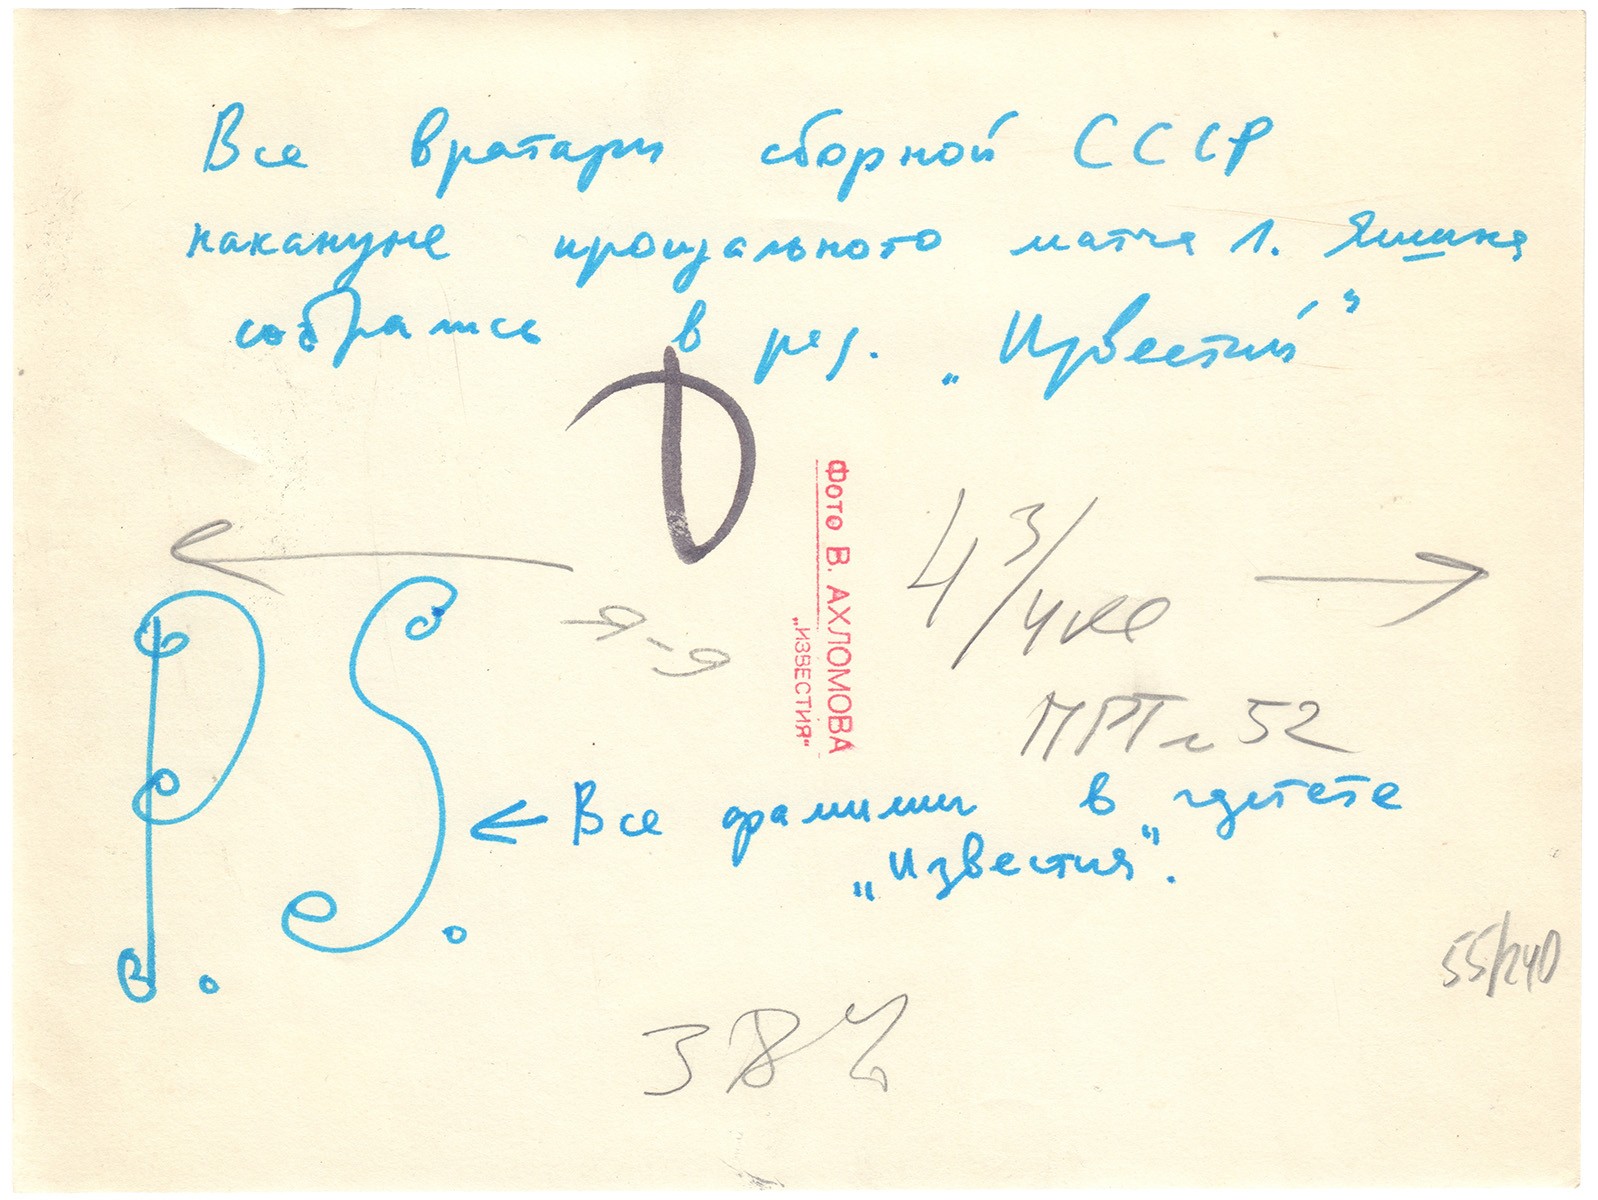 Все вратари сборной СССР
накануне прощального матча Л. Яшина
собрались в ред. „Известий”
Фото В. АХЛОМОВА
„ИЗВЕСТИЯ"
4 3/4 кв
52
P.S.
← Все фамилии в газете
„Известия".
55/240
384